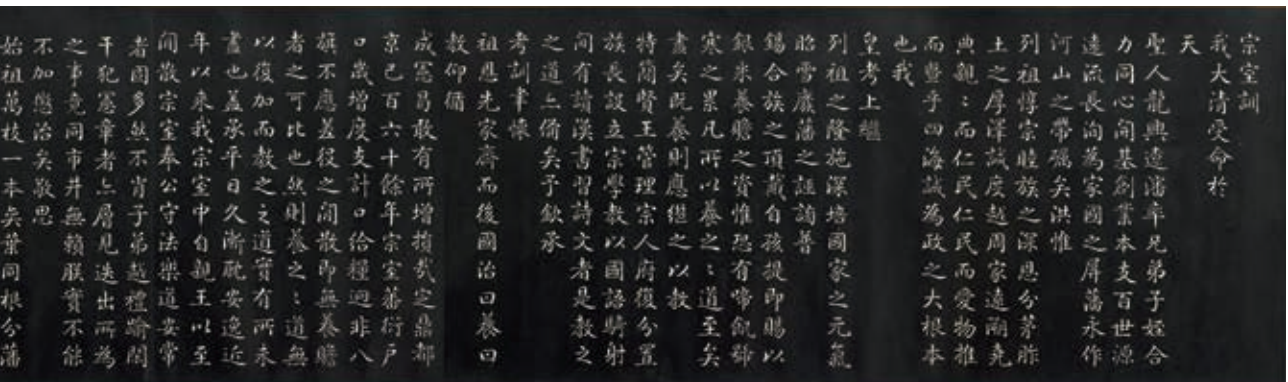 宗室訓
我大清受命於
天
聖人龍興遠藩率兄弟子姪合
力同心開基創業本支百世源
遠流長洵為家國之屏藩永作
河山之帶礪矣洪惟
列祖惇宗睦族之深恩分茅胙
土之厚澤誠度越周家遠闡堯
典親〻而仁民仁民而愛物推
而暨乎四海誠為政之大根本
也我
皇考上繼
列祖之隆施深培國家之元氣
昭雪廢藩之誣謫普
錫合族之頂戴自孩提即賜以
銀米養贍之資惟恐有啼飢號
寒之累凡所以養之〻道至矣
盡矣既養則應繼之以教
特簡賢王管理宗人府復分置
族長設立宗學教以國語騎射
間有讀漢書習詩文者是教之
之道亦備矣予欽承
考訓聿懷
祖恩先家齊而後國治曰養曰
教仰循
成憲曷敢有所增損哉定鼎都
京已百六十餘年宗室蕃衍戶
口歲增度支計口給糧迥非八
旗不應差役之閒散即無養贍
者之可比也然則養之〻道無
以復加而教之之道實有所未
盡也蓋承平日久漸耽安逸近
年以來我宗室中自親王以至
閒散宗室奉公守法樂道安常
者固多然不肖子弟越禮踰閑
干犯憲章者亦層見迭出所為
之事竟同市井無賴朕實不能
不加懲治矣敬思
始祖萬枝一本奕葉同根分藩